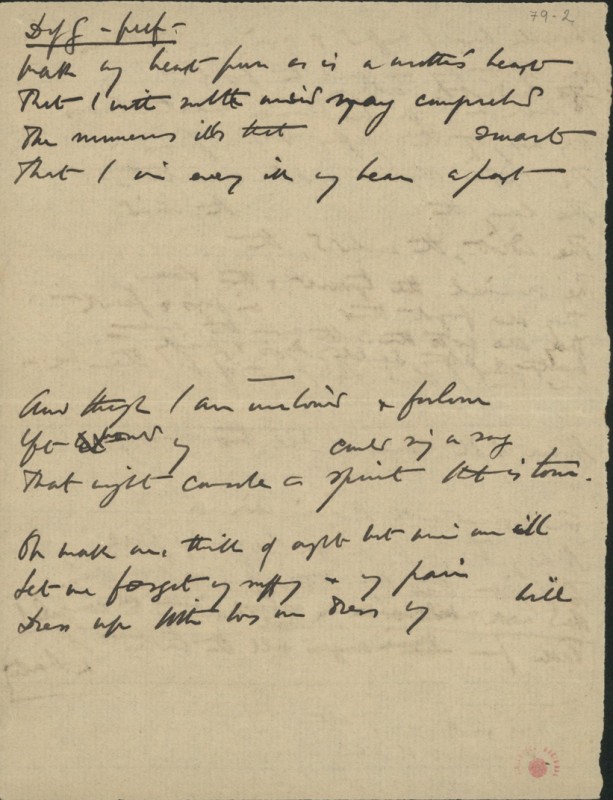 79-2
make my heart pure as is a mother's heart
That I with subtle mind may comprehend
The numerous ills that smart
That I in every ill my bear a part
And though I am unloved & forlorn
Yet I could sing a song
That might console a spirit that is torn.
Oh make me think of aught but mine own ill
Let me forget my & my pain
Dress up with me my will